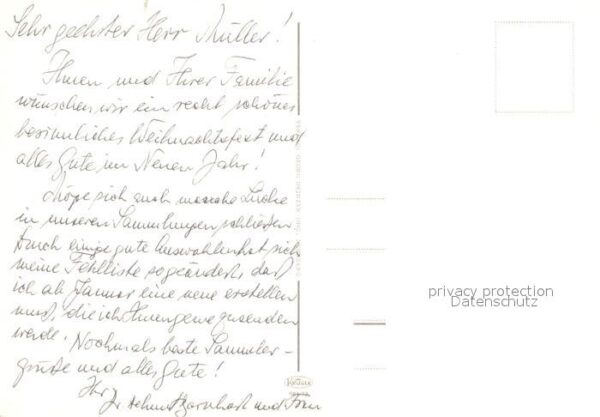 Sehr geehrter Herr Müller!
Ihnen und Ihrer Familie
wünschen wir ein recht schönes
besinnliches Weihnachtsfest und
alles Gute im Neuen Jahr!
Möge sich auch manche Lücke
in unseren Sammlungen schließen.
Durch einige gute Auswahlen hat sich
meine Fehlliste so geändert, daß
ich ab Januar eine neue erstellen
muß, die ich Ihnen gerne zusenden
werde. Nochmals beste Sammler-
grüße und alles Gute!
Ihr
und Frau
privacy protection
Datenschutz